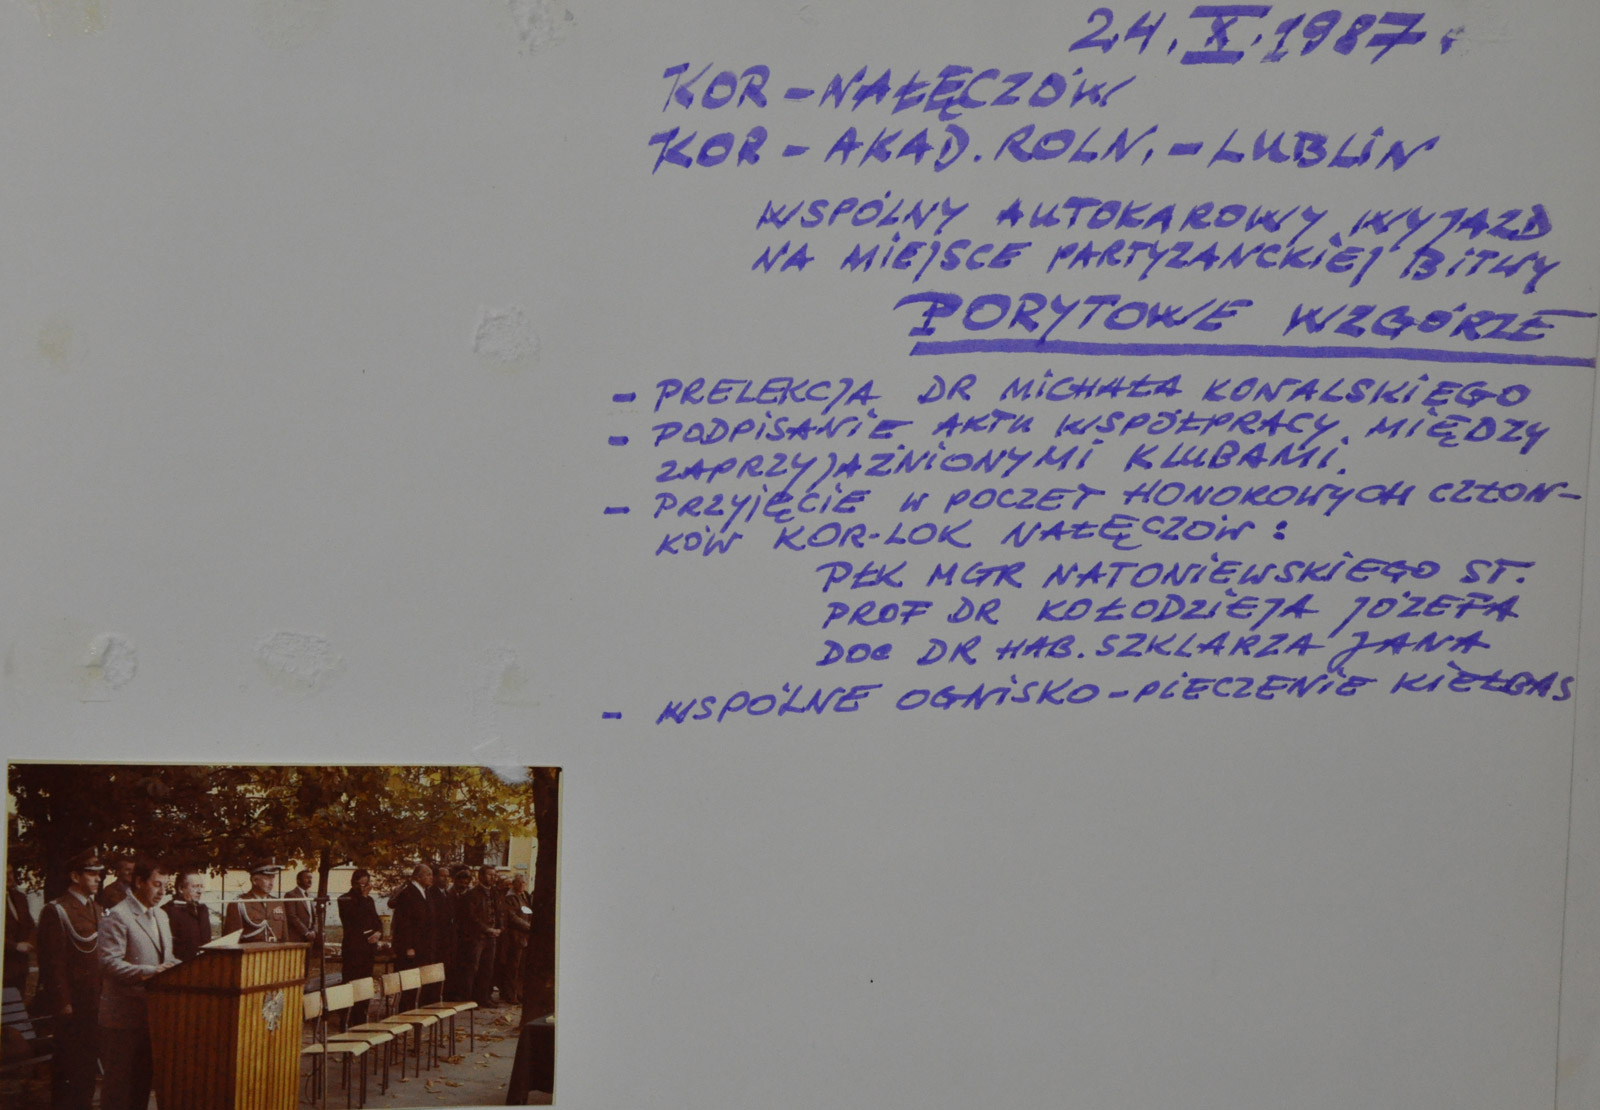 24.X.1987.
KOR - NAŁĘCZÓW
KOR - AKAD. ROLN. - LUBLIN
WSPÓLNY AUTOKAROWY WYJAZD
NA MIEJSCE PARTYZANCKIEJ BITWY
PORYTOWE WZGÓRZE
- PRELEKCJA DR MICHAŁA KOWALSKIEGO
- PODPISANIE AKTU WSPÓŁPRACY MIĘDZY
ZAPRZYJAŹNIONYMI KLUBAMI.
- PRZYJĘCIE W POCZET HONOROWYCH CZŁON-
KÓW KOR-LOK NAŁĘCZÓW :
PŁK MGR NATONIEWSKIEGO ST.
PROF DR KOŁODZIEJA JÓZEFA
DOC DR HAB. SZKLARZA JANA
- WSPÓLNE OGNISKO - PIECZENIE KIEŁBAS